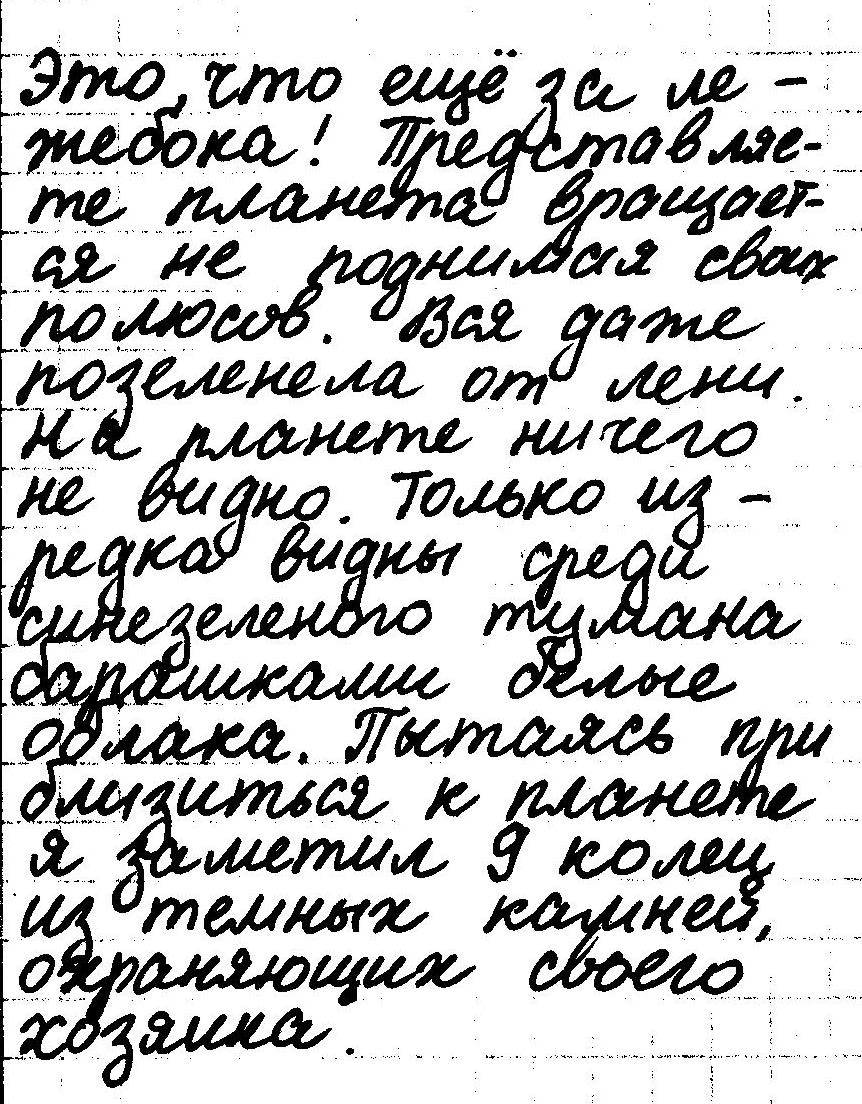 Это, что ещё за ле-
жебока! Представляе-
те планета вращает-
ся не поднимая своих
полюсов. Вся даже
позеленела от лени.
На планете ничего
не видно. Только из-
редка видны среди
синезеленого тумана
барашками белые
облака. Пытаясь при
близиться к планете
я заметил 9 колец
из темных камней,
охраняющих своего
хозяина.